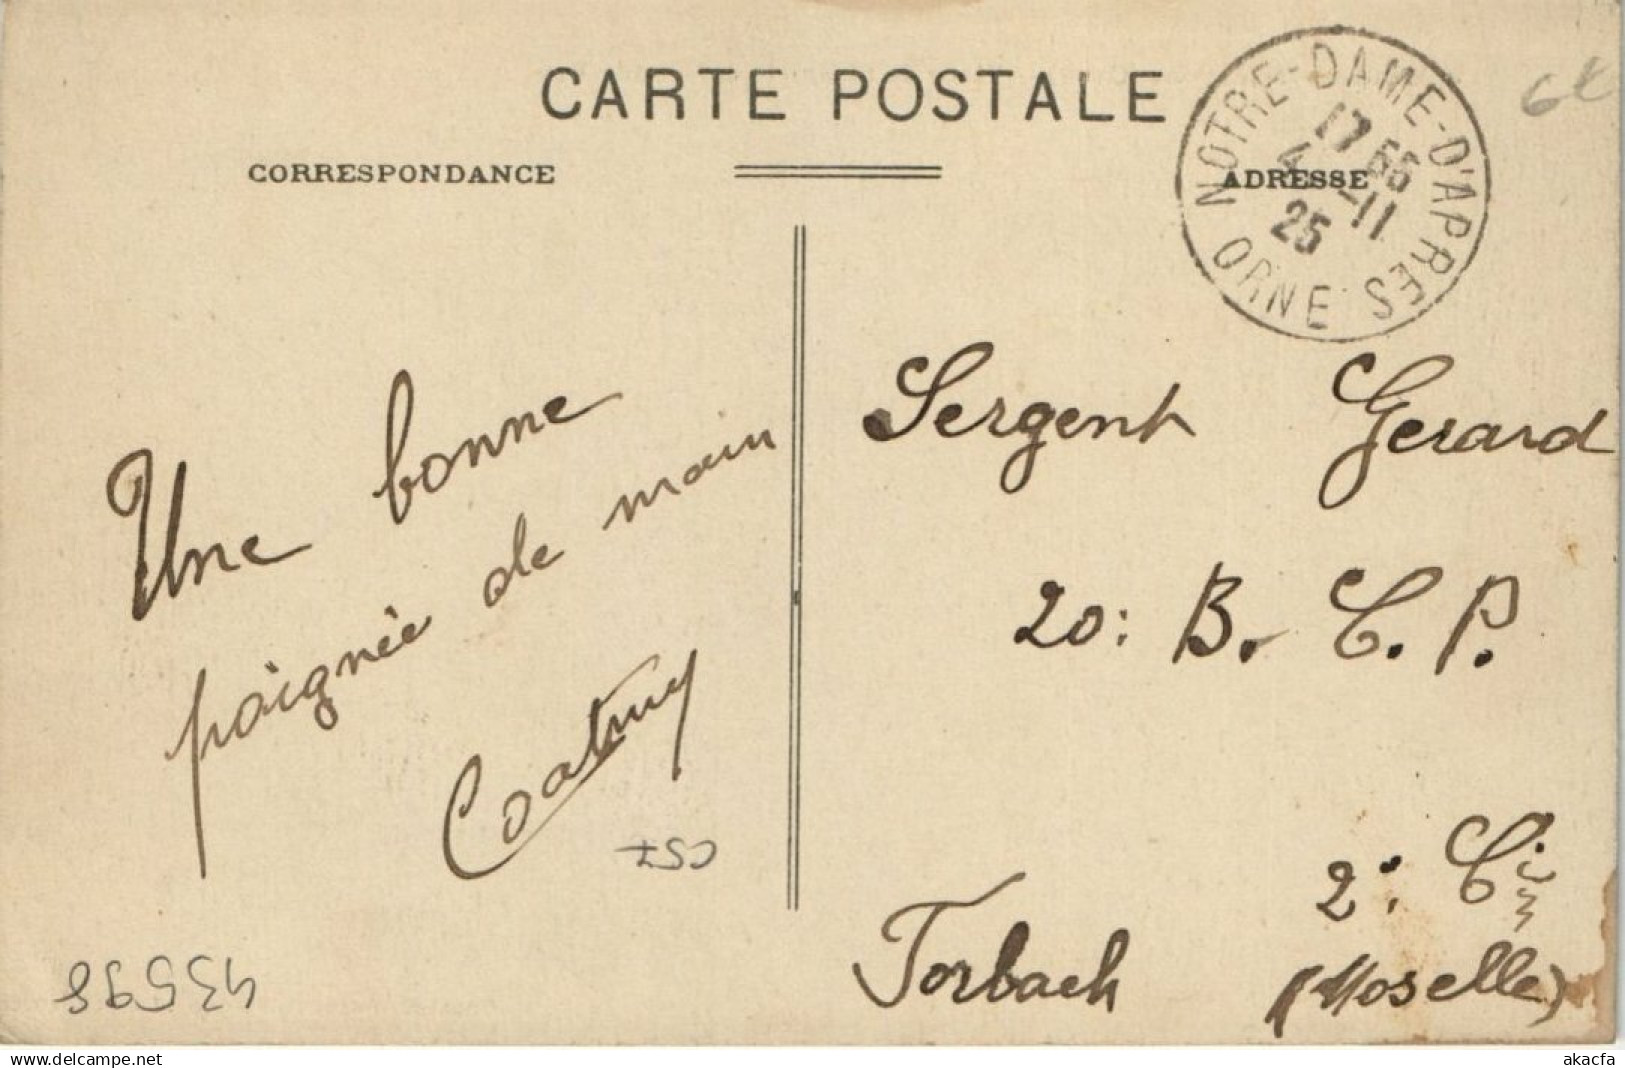 CARTE POSTALE
CORRESPONDANCE
ADRESSE
NOTRE-DAME-D'APRES
17 55
4 -11
25
ORNE
Une bonne
poignée de main
Sergent Gerard
20: B. C. P.
2e: Cie
Forbach (Moselle)
43598
www.delcampe.net
akacfa